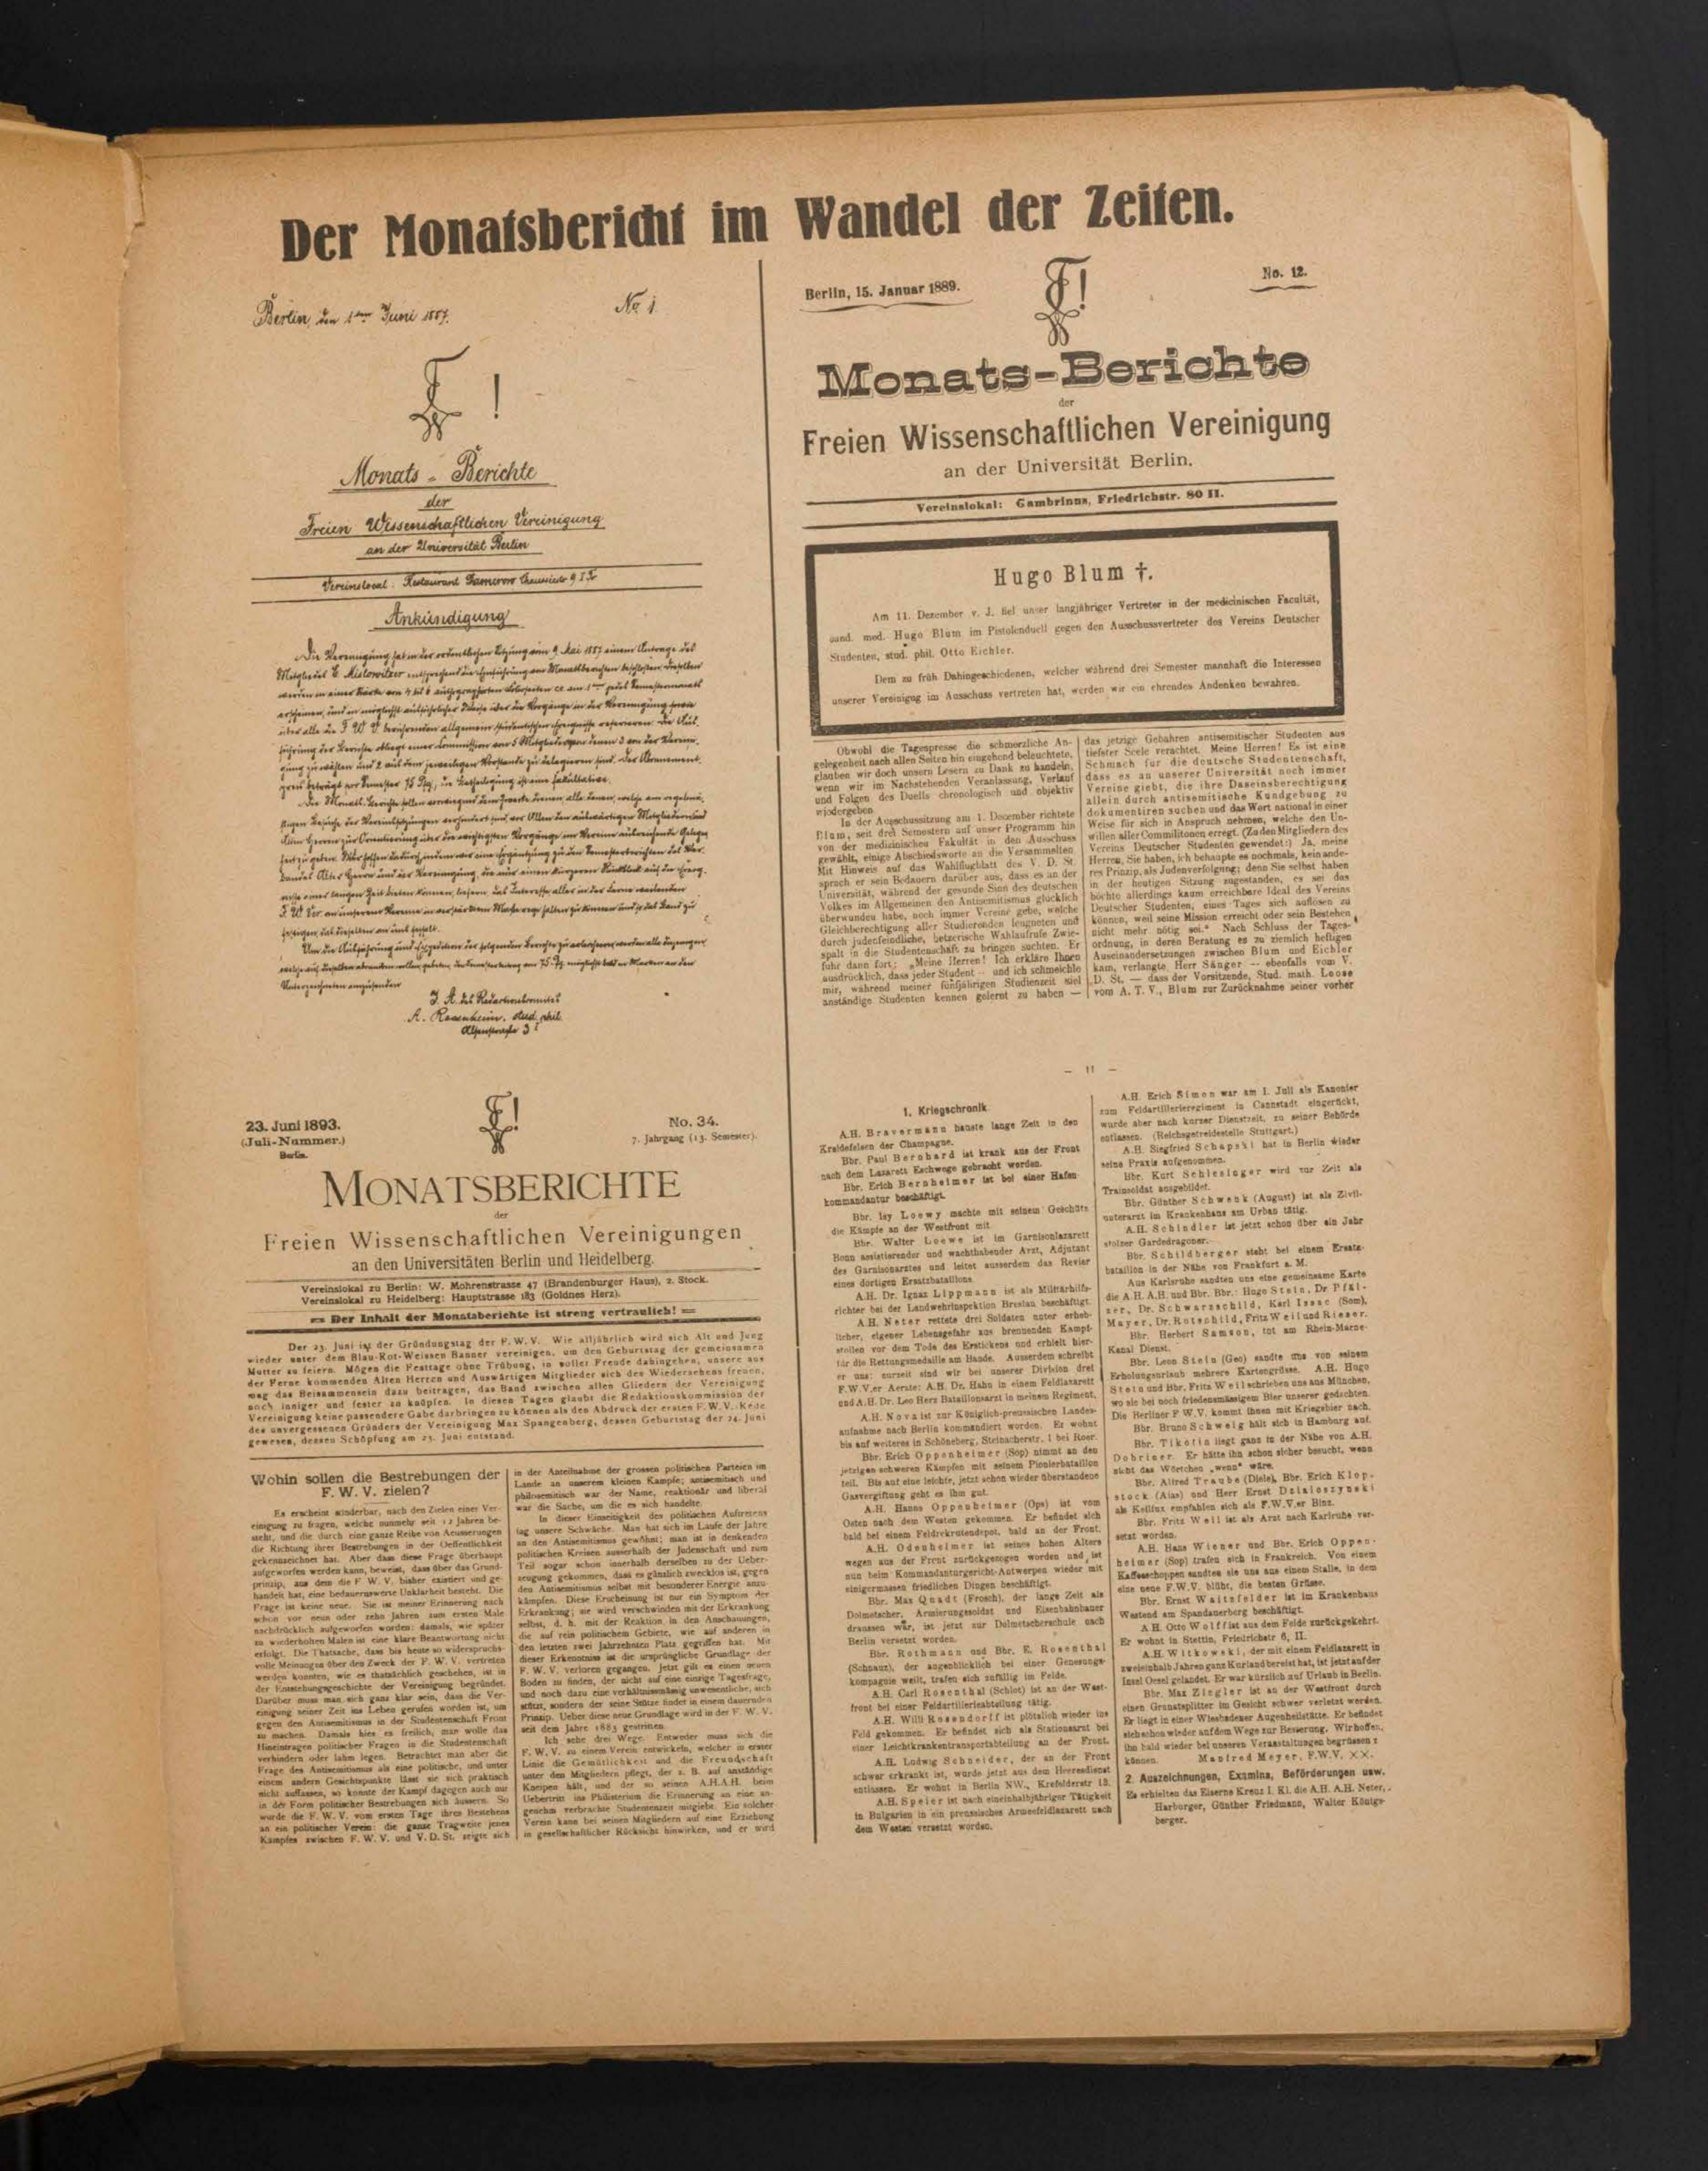 Der Monatsbericht im Wandel der Zeiten.
Berlin, den 1ten Juni 1887.
No 1.
F !
Monats-Berichte
der
Freien Wissenschaftlichen Vereinigung
an der Universität Berlin
Vereinslocal: Restaurant
Ankündigung
Die Vereinigung hat in der ordentlichen Sitzung vom 9. Mai 1887 einem Antrage des
J. A. des Redactionscomites
A. Rosenheim, stud. phil.
Berlin, 15. Januar 1889.
F!
No. 12.
Monats-Berichte
der
Freien Wissenschaftlichen Vereinigung
an der Universität Berlin.
Vereinslokal: Gambrinus, Friedrichstr. 80 II.
Hugo Blum †.
Am 11. Dezember v. J. fiel unser langjähriger Vertreter in der medicinischen Facultät,
cand. med. Hugo Blum im Pistolenduell gegen den Ausschussvertreter des Vereins Deutscher
Studenten, stud. phil. Otto Eichler.
Dem zu früh Dahingeschiedenen, welcher während drei Semester mannhaft die Interessen
unserer Vereinigug im Ausschuss vertreten hat, werden wir ein ehrendes Andenken bewahren.
Obwohl die Tagespresse die schmerzliche An-
gelegenheit nach allen Seiten hin eingehend beleuchtete,
glauben wir doch unsern Lesern zu Dank zu handeln,
wenn wir im Nachstehenden Veranlassung, Verlauf
und Folgen des Duells chronologisch und objektiv
wiedergeben.
In der Ausschussitzung am 1. December richtete
Blum, seit drei Semestern auf unser Programm hin
von der medizinischen Fakultät in den Ausschuss
gewählt, einige Abschiedsworte an die Versammelten.
Mit Hinweis auf das Wahlflugblatt des V. D. St.
sprach er sein Bedauern darüber aus, dass es an der
Universität, während der gesunde Sinn des deutschen
Volkes im Allgemeinen den Antisemitismus glücklich
überwunden habe, noch immer Vereine gebe, welche
Gleichberechtigung aller Studierenden leugneten und
durch judenfeindliche, hetzerische Wahlaufrufe Zwie-
spalt in die Studentenschaft zu bringen suchten. Er
fuhr dann fort: „Meine Herren! Ich erkläre Ihnen
ausdrücklich, dass jeder Student — und ich schmeichle
mir, während meiner fünfjährigen Studienzeit viel
anständige Studenten kennen gelernt zu haben —
das jetzige Gebahren antisemitischer Studenten aus
tiefster Seele verachtet. Meine Herren! Es ist eine
Schmach für die deutsche Studentenschaft,
dass es an unserer Universität noch immer
Vereine giebt, die ihre Daseinsberechtigung
allein durch antisemitische Kundgebung zu
dokumentiren suchen und das Wort national in einer
Weise für sich in Anspruch nehmen, welche den Un-
willen aller Commilitonen erregt. (Zu den Mitgliedern des
Vereins Deutscher Studenten gewendet:) Ja, meine
Herren, Sie haben, ich behaupte es nochmals, kein ande-
res Prinzip, als Judenverfolgung; denn Sie selbst haben
in der heutigen Sitzung zugestanden, es sei das
höchte allerdings kaum erreichbare Ideal des Vereins
Deutscher Studenten, eines Tages sich auflösen zu
können, weil seine Mission erreicht oder sein Bestehen
nicht mehr nötig sei.“ Nach Schluss der Tages-
ordnung, in deren Beratung es zu ziemlich heftigen
Auseinandersetzungen zwischen Blum und Eichler
kam, verlangte Herr Sänger — ebenfalls vom V.
D. St. — dass der Vorsitzende, Stud. math. Loose
vom A. T. V., Blum zur Zurücknahme seiner vorher
23. Juni 1893.
(Juli-Nummer.)
Berlin.
F!
No. 34.
7. Jahrgang (13. Semester).
MONATSBERICHTE
der
Freien Wissenschaftlichen Vereinigungen
an den Universitäten Berlin und Heidelberg.
Vereinslokal zu Berlin: W. Mohrenstrasse 47 (Brandenburger Haus), 2. Stock.
Vereinslokal zu Heidelberg: Hauptstrasse 183 (Goldnes Herz).
Der Inhalt der Monatsberichte ist streng vertraulich!
Der 23. Juni ist der Gründungstag der F. W. V. Wie alljährlich wird sich Alt und Jung
wieder unter dem Blau-Rot-Weissen Banner vereinigen, um den Geburtstag der gemeinsamen
Mutter zu feiern. Mögen die Festtage ohne Trübung, in voller Freude dahingehen, unsere aus
der Ferne kommenden Alten Herren und Auswärtigen Mitglieder sich des Wiedersehens freuen,
mag das Beisammensein dazu beitragen, das Band zwischen allen Gliedern der Vereinigung
noch inniger und fester zu knüpfen. In diesen Tagen glaubt die Redaktionskommission der
Vereinigung keine passendere Gabe darbringen zu können als den Abdruck der ersten F. W. V.-Rede
des unvergessenen Gründers der Vereinigung Max Spangenberg, dessen Geburtstag der 24. Juni
gewesen, dessen Schöpfung am 23. Juni entstand.
Wohin sollen die Bestrebungen der
F. W. V. zielen?
Es erscheint sonderbar, nach den Zielen einer Ver-
einigung zu fragen, welche nunmehr seit 12 Jahren be-
steht, und die durch eine ganze Reihe von Aeusserungen
die Richtung ihrer Bestrebungen in der Oeffentlichkeit
gekennzeichnet hat. Aber dass diese Frage überhaupt
aufgeworfen werden kann, beweist, dass über das Grund-
prinzip, aus dem die F. W. V. bisher existiert und ge-
handelt hat, eine bedauernswerte Unklarheit besteht. Die
Frage ist keine neue. Sie ist meiner Erinnerung nach
schon vor neun oder zehn Jahren zum ersten Male
nachdrücklich aufgeworfen worden: damals, wie später
zu wiederholten Malen ist eine klare Beantwortung nicht
erfolgt. Die Thatsache, dass bis heute so widerspruchs-
volle Meinungen über den Zweck der F. W. V. vertreten
werden konnten, wie es thatsächlich geschehen, ist in
der Entstehungsgeschichte der Vereinigung begründet.
Darüber muss man sich ganz klar sein, dass die Ver-
einigung seiner Zeit ins Leben gerufen worden ist, um
gegen den Antisemitismus in der Studentenschaft Front
zu machen. Damals hies es freilich, man wolle das
Hineintragen politischer Fragen in die Studentenschaft
verhindern oder lahm legen. Betrachtet man aber die
Frage des Antisemitismus als eine politische, und unter
einem andern Gesichtspunkte lässt sie sich praktisch
nicht auffassen, so konnte der Kampf dagegen auch nur
in der Form politischer Bestrebungen sich äussern. So
wurde die F. W. V. vom ersten Tage ihres Bestehens
an ein politischer Verein: die ganze Tragweite jenes
Kampfes zwischen F. W. V. und V. D. St. zeigte sich
in der Anteilnahme der grossen politischen Parteien im
Lande an unserem kleinen Kampfe; antisemitisch und
philosemitisch war der Name, reaktionär und liberal
war die Sache, um die es sich handelte.
In dieser Einseitigkeit des politischen Auftretens
lag unsere Schwäche. Man hat sich im Laufe der Jahre
an den Antisemitismus gewöhnt; man ist in denkenden
politischen Kreisen ausserhalb der Judenschaft und zum
Teil sogar schon innerhalb derselben zu der Ueber-
zeugung gekommen, dass es gänzlich zwecklos ist, gegen
den Antisemitismus selbst mit besonderer Energie anzu-
kämpfen. Diese Erscheinung ist nur ein Symptom der
Erkrankung; sie wird verschwinden mit der Erkrankung
selbst, d. h. mit der Reaktion in den Anschauungen,
die auf rein politischem Gebiete, wie auf anderen in
den letzten zwei Jahrzehnten Platz gegriffen hat. Mit
dieser Erkenntniss ist die ursprüngliche Grundlage der
F. W. V. verloren gegangen. Jetzt gilt es einen neuen
Boden zu finden, der nicht auf eine einzige Tagesfrage,
und noch dazu eine verhältnissmässig unwesentliche, sich
stützt, sondern der seine Stütze findet in einem dauernden
Prinzip. Ueber diese neue Grundlage wird in der F. W. V.
seit dem Jahre 1883 gestritten.
Ich sehe drei Wege. Entweder muss sich die
F. W. V. zu einem Verein entwickeln, welcher in erster
Linie die Gemütlichkeit und die Freundschaft
unter den Mitgliedern pflegt, der z. B. auf anständige
Kneipen hält, und der so seinen A.H.A.H. beim
Uebertritt ins Philisterium die Erinnerung an eine an-
genehm verbrachte Studentenzeit mitgiebt. Ein solcher
Verein kann bei seinen Mitgliedern auf eine Erziehung
in gesellschaftlicher Rücksicht hinwirken, und er wird
— 11 —
1. Kriegschronik.
A.H. Bravermann hauste lange Zeit in den
Kreidefelsen der Champagne.
Bbr. Paul Bernhard ist krank aus der Front
nach dem Lazarett Eschwege gebracht worden.
Bbr. Erich Bernheimer ist bei einer Hafen-
kommandantur beschäftigt.
Bbr. Isy Loewy machte mit seinem Geschütz
die Kämpfe an der Westfront mit.
Bbr. Walter Loewe ist im Garnisonlazarett
Bonn assistierender und wachthabender Arzt, Adjutant
des Garnisonarztes und leitet ausserdem das Revier
eines dortigen Ersatzbataillons.
A.H. Dr. Ignaz Lippmann ist als Militärhilfs-
richter bei der Landwehrinspektion Breslau beschäftigt.
A.H. Neter rettete drei Soldaten unter erheb-
licher, eigener Lebensgefahr aus brennenden Kampf-
stollen vor dem Tode des Erstickens und erhielt hier-
für die Rettungsmedaille am Bande. Ausserdem schreibt
er uns: zurzeit sind wir bei unserer Division drei
F.W.V.er Aerzte: A.H. Dr. Hahn in einem Feldlazarett
und A.H. Dr. Leo Herz Bataillonsarzt in meinem Regiment.
A.H. Nova ist zur Königlich-preussischen Landes-
aufnahme nach Berlin kommandiert worden. Er wohnt
bis auf weiteres in Schöneberg, Steinacherstr. 1 bei Roer.
Bbr. Erich Oppenheimer (Sop) nimmt an den
jetzigen schweren Kämpfen mit seinem Pionierbataillon
teil. Bis auf eine leichte, jetzt schon wieder überstandene
Gasvergiftung geht es ihm gut.
A.H. Hanns Oppenheimer (Ops) ist vom
Osten nach dem Westen gekommen. Er befindet sich
bald bei einem Feldrekrutendepot, bald an der Front.
A.H. Odenheimer ist seines hohen Alters
wegen aus der Front zurückgezogen worden und ist
nun beim Kommandanturgericht-Antwerpen wieder mit
einigermassen friedlichen Dingen beschäftigt.
Bbr. Max Quadt (Frosch), der lange Zeit als
Dolmetscher, Armierungssoldat und Eisenbahnbauer
draussen war, ist jetzt zur Dolmetscherschule nach
Berlin versetzt worden.
Bbr. Rothmann und Bbr. E. Rosenthal
(Schnauz), der augenblicklich bei einer Genesungs-
kompagnie weilt, trafen sich zufällig im Felde.
A.H. Carl Rosenthal (Schlot) ist an der West-
front bei einer Feldartillerieabteilung tätig.
A.H. Willi Rosendorff ist plötzlich wieder ins
Feld gekommen. Er befindet sich als Stationsarzt bei
einer Leichtkrankentransportabteilung an der Front.
A.H. Ludwig Schneider, der an der Front
schwer erkrankt ist, wurde jetzt aus dem Heeresdienst
entlassen. Er wohnt in Berlin NW., Krefelderstr 18.
A.H. Speier ist nach eineinhalbjähriger Tätigkeit
in Bulgarien in ein preussisches Armeefeldlazarett nach
dem Westen versetzt worden.
A.H. Erich Simon war am 1. Juli als Kanonier
zum Feldartillerieregiment in Cannstadt eingerückt,
wurde aber nach kurzer Dienstzeit, zu seiner Behörde
entlassen. (Reichsgetreidestelle Stuttgart.)
A.H. Siegfried Schapski hat in Berlin wieder
seine Praxis aufgenommen.
Bbr. Kurt Schlesinger wird zur Zeit als
Trainsoldat ausgebildet.
Bbr. Günther Schwenk (August) ist als Zivil-
unterarzt im Krankenhaus am Urban tätig.
A.H. Schindler ist jetzt schon über ein Jahr
stolzer Gardedragoner.
Bbr. Schildberger steht bei einem Ersatz-
bataillon in der Nähe von Frankfurt a. M.
Aus Karlsruhe sandten uns eine gemeinsame Karte
die A.H. A.H. und Bbr. Bbr.: Hugo Stein, Dr Pfäl-
zer, Dr. Schwarzschild, Karl Isaac (Som),
Mayer, Dr. Rotschild, Fritz Weil und Rieser.
Bbr. Herbert Samson, tut am Rhein-Marne-
Kanal Dienst.
Bbr. Leon Stein (Geo) sandte uns von seinem
Erholungsurlaub mehrere Kartengrüsse. A.H. Hugo
Stein und Bbr. Fritz Weil schrieben uns aus München,
wo sie bei noch friedensmässigem Bier unserer gedachten.
Die Berliner F W.V. kommt Ihnen mit Kriegsbier nach.
Bbr. Bruno Schweig hält sich in Hamburg auf.
Bbr. Tikotin liegt ganz in der Nähe von A.H.
Dobriner. Er hätte ihn schon sicher besucht, wenn
nicht das Wörtchen „wenn“ wäre.
Bbr. Alfred Traube (Diele), Bbr. Erich Klop-
stock (Aias) und Herr Ernst Dzialoszynski
als Keilfux empfahlen sich als F.W.V.er Binz.
Bbr. Fritz Weil ist als Arzt nach Karlruhe ver-
setzt worden.
A.H. Hans Wiener und Bbr. Erich Oppen-
heimer (Sop) trafen sich in Frankreich. Von einem
Kaffeeschoppen sandten sie uns aus einem Stalle, in dem
eine neue F.W.V. blüht, die besten Grüsse.
Bbr. Ernst Waitzfelder ist im Krankenhaus
Westend am Spandauerberg beschäftigt.
A.H. Otto Wolff ist aus dem Felde zurückgekehrt.
Er wohnt in Stettin, Friedrichstr 6, II.
A.H. Witkowski, der mit einem Feldlazarett in
zweieinhalb Jahren ganz Kurland bereist hat, ist jetzt auf der
Insel Oesel gelandet. Er war kürzlich auf Urlaub in Berlin.
Bbr. Max Ziegler ist an der Westfront durch
einen Granatsplitter im Gesicht schwer verletzt worden.
Er liegt in einer Wiesbadener Augenheilstätte. Er befindet
sich schon wieder auf dem Wege zur Besserung. Wir hoffen,
ihn bald wieder bei unseren Veranstaltungen begrüssen z
können. Manfred Meyer, F.W.V. XX.
2. Auszeichnungen, Examina, Beförderungen usw.
Es erhielten das Eiserne Kreuz I. Kl. die A.H. A.H. Neter,
Harburger, Günther Friedmann, Walter Königs-
berger.